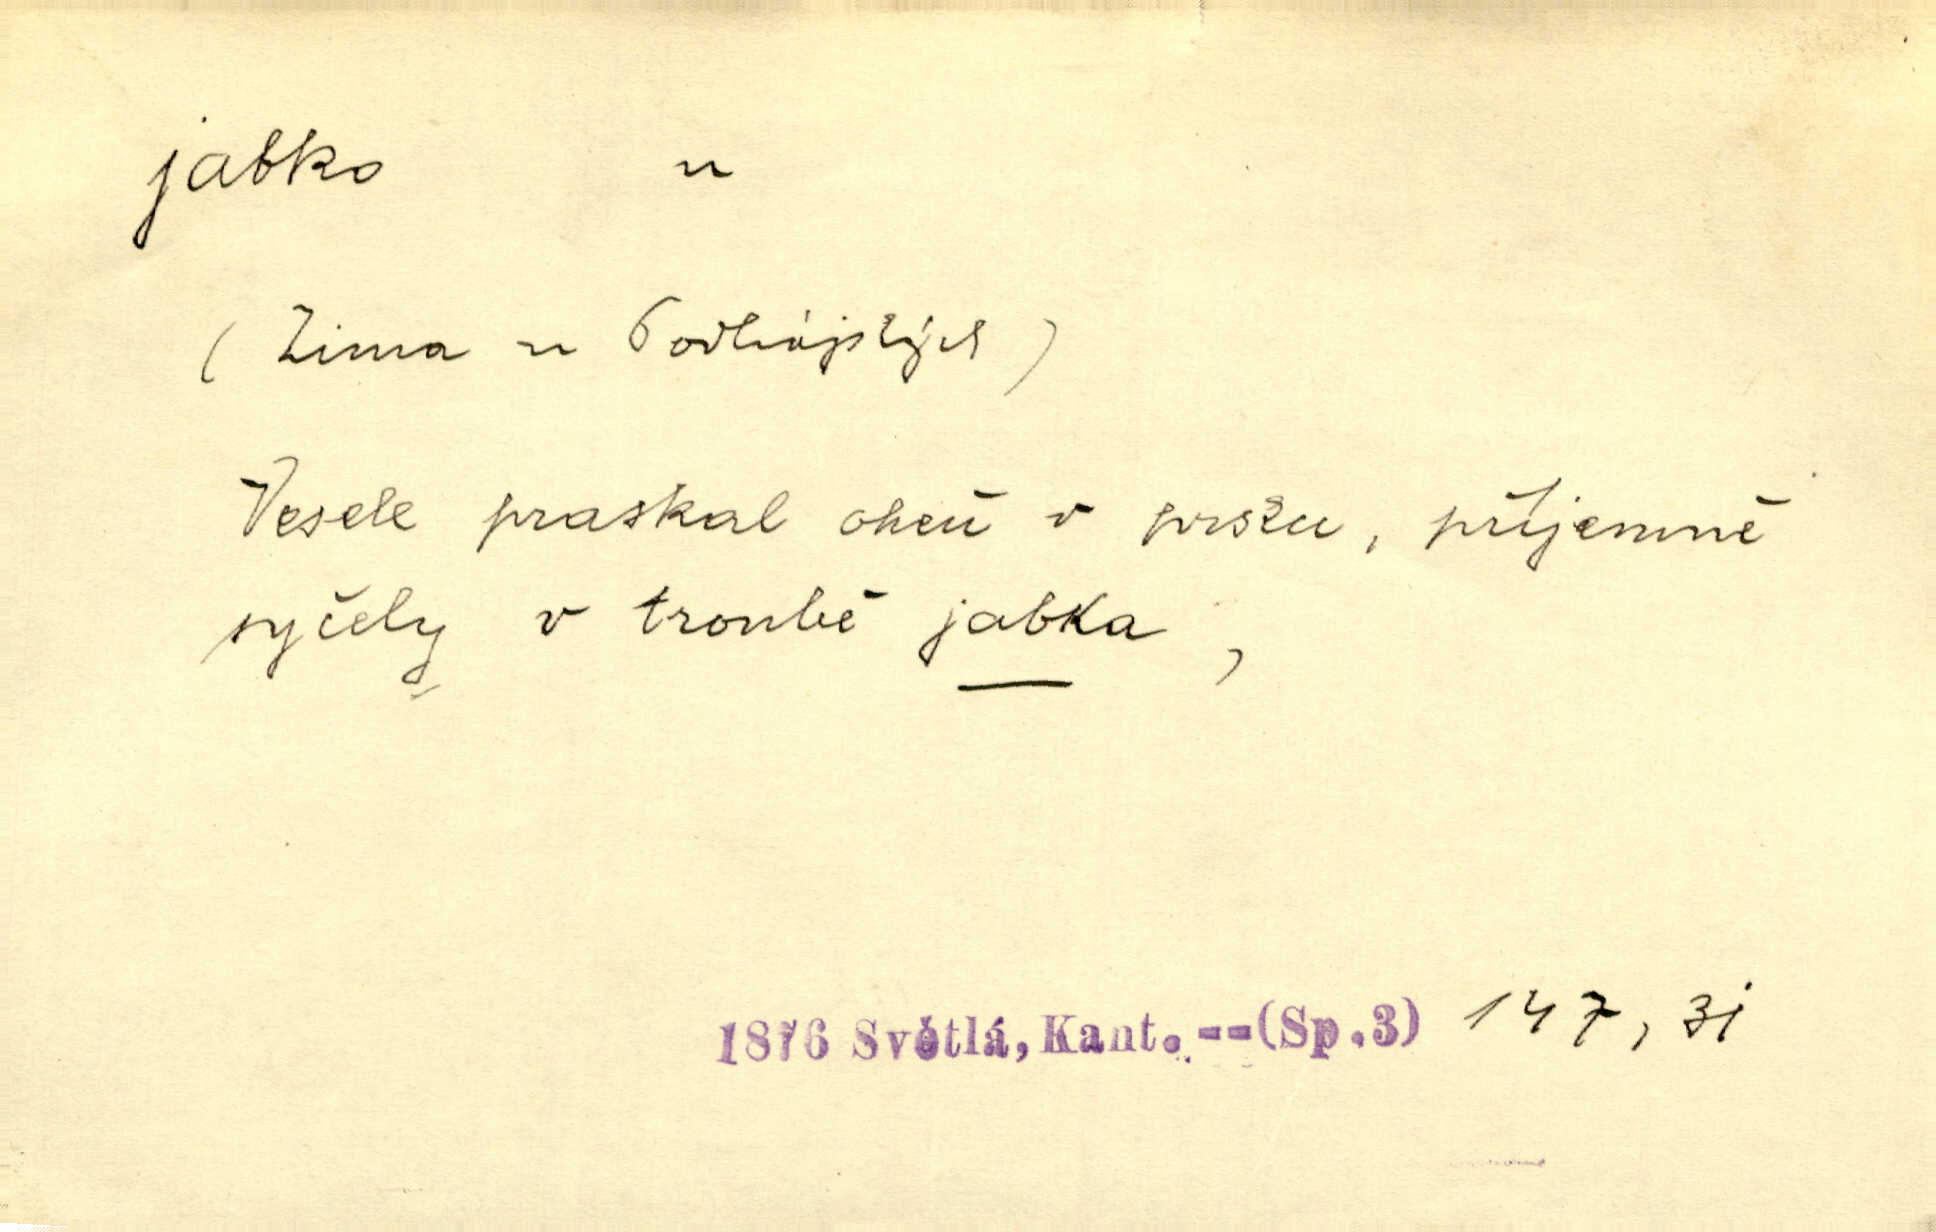 jabko n
(Zima u Podhájských)
Vesele praskal oheň v prsku, příjemně
syčely v troubě jabka,
1876 Světlá, Kant. -- (Sp.3) 147, zi